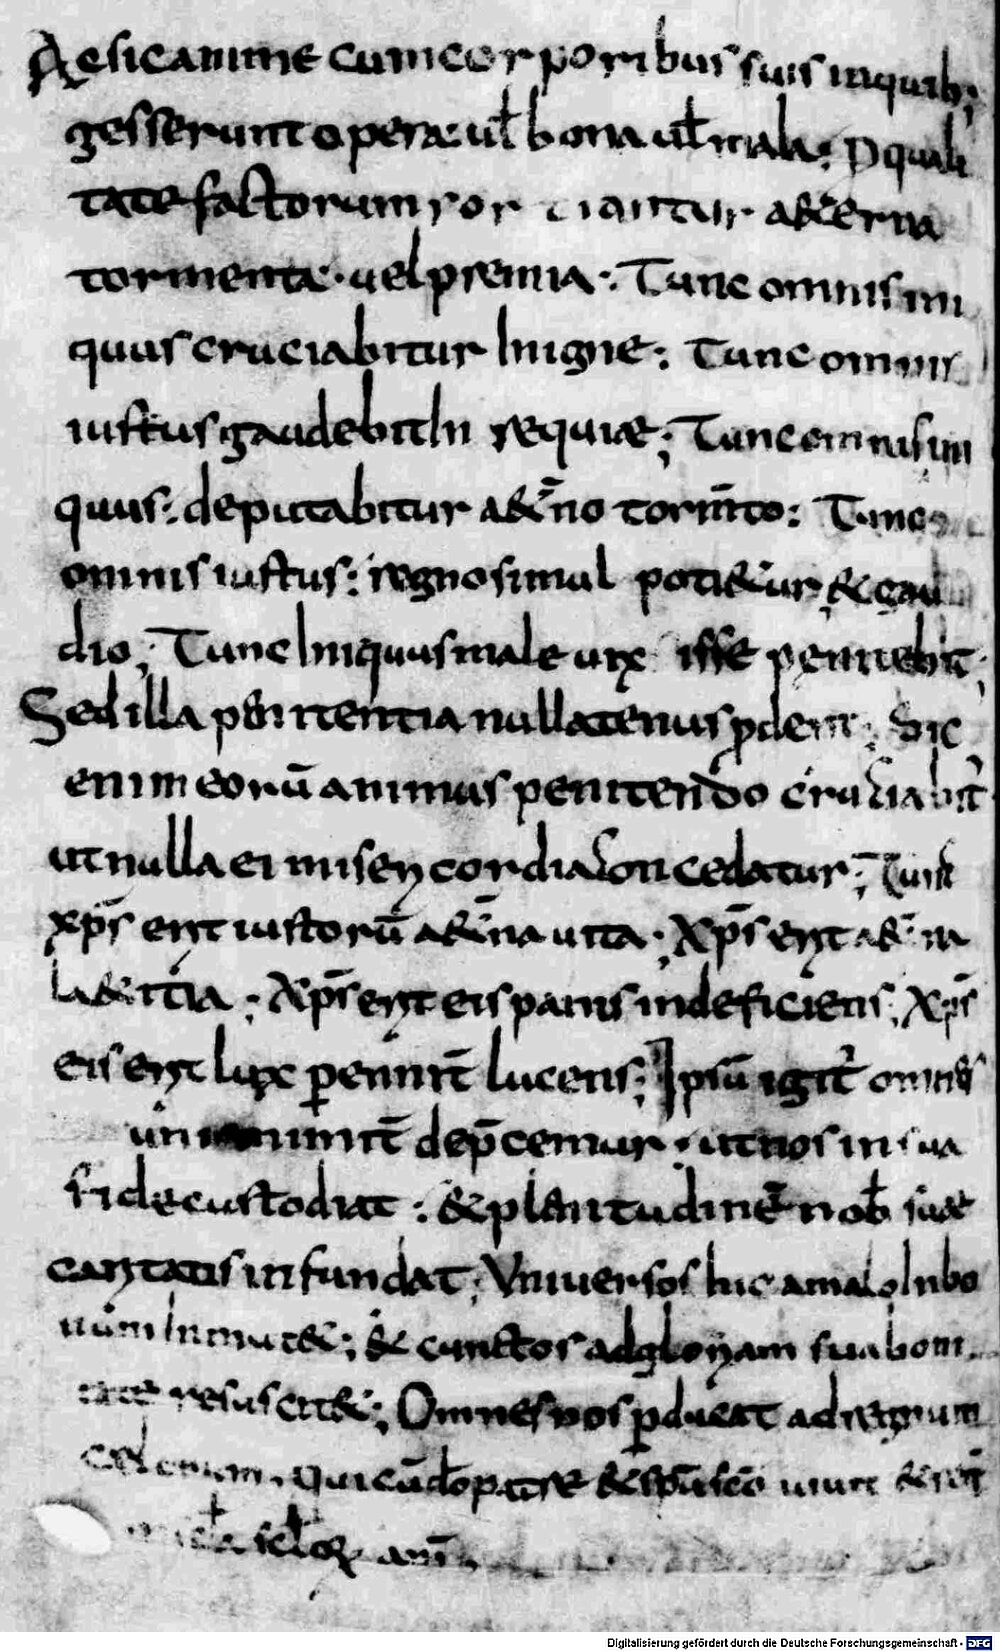 Aesic anime cum corporibus suis inquib;
gesserunt opera ul bona ul mala; p quali
tate factorum sor tiantur aeterna
tormenta. uel premia. Tunc omnis ini
quus cruciabitur Inigne; Tunc omnis
iustus gaudebit In requiae; Tunc omnis ini
quus. deputabitur aet̄no torm̄to: Tunc
omnis iustus. regno simul potietur, & gau
dio; Tunc Iniquus male uix isse penitebit;
Sed illa penitentia nullatenus pderit; Sic
enim eorū animus penitendo cruciabit̄
ut nulla ei misericordia concedatur; Tunc
xp̄s erit iustorū aet̄na uita; Xp̄s erit aet̄na
laetitia; Xp̄s erit eis panis indeficiens; Xp̄s
eis erit lux pennit̄ lucens; Ipsū igit̄ omnes
unianimit̄ dep̄cemur. ut nos in sua
fide custodiat: & plenitudinē nob suae
caritatis infundat; Uniuersos hic a malo In bo
num Inmutet; & cunctos ad gloriam sua boni
tate resuscitet; Omnes nos pducat ad regnum
celorum. Qui cū dō patre & sp̄u scō uiuit & reḡ
scła scłoꝝ am̄